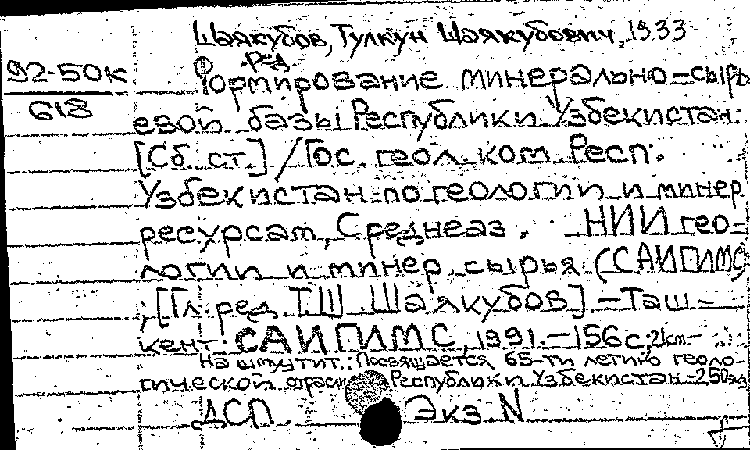 Шаякубов, Тулкун Шаякубович, 1933
ред
92-50к
618
Формирование минерально-сырь
евой базы Республики Узбекистан:
[Сб. ст.] / Гос. геол. ком. Респ.
Узбекистан по геологии и минер
ресурсам, Среднеаз. НИИ гео-
логии и минер. сырья (САИГИМС)
; [Гл. ред. Т.Ш. Шаякубов] - Таш-
кент: САИГИМС, 1991. - 156 с. 21см -
На шмуцтит.: Посвящается 65-ти летию геоло-
гической Республики Узбекистан - 250экз
ДСП Экз N